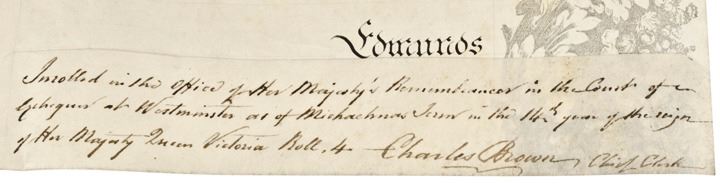 Edmunds
Inrolled in the Office of Her Majesty's Remembrancer in the Court of
Exchequer at Westminster as of Michaelmas Term in the 14th year of the reign
of Her Majesty Queen Victoria Roll. 4. Charles Brown, Chief Clerk